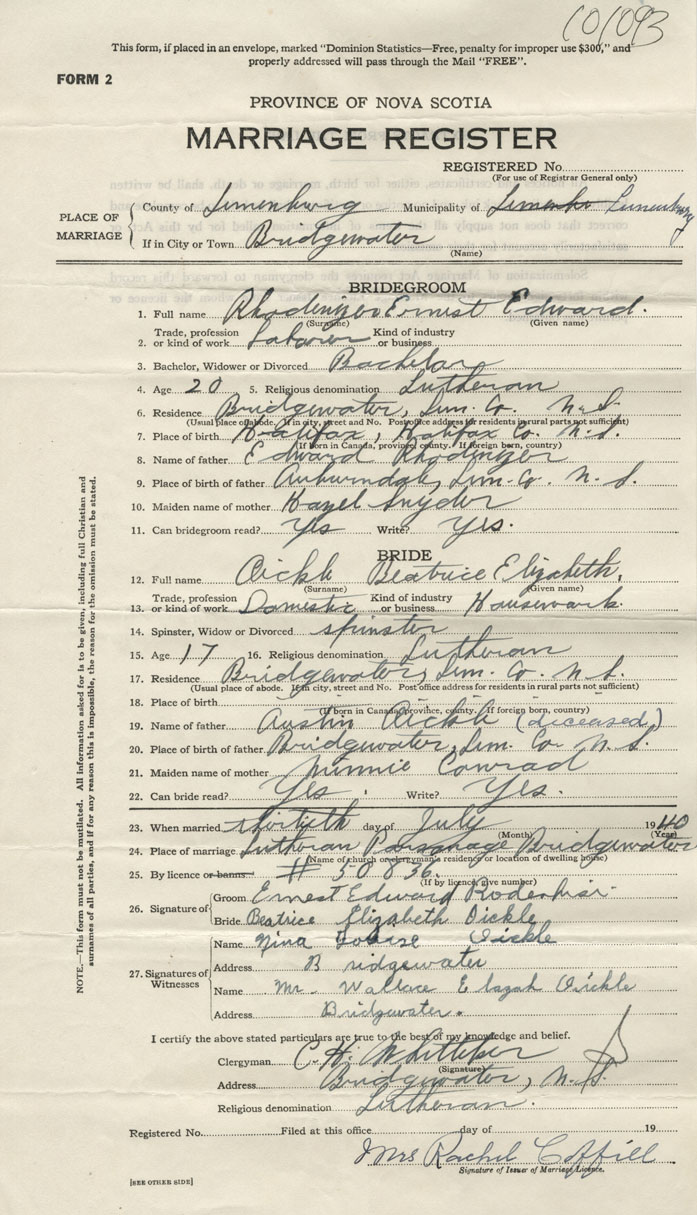 101093
This form, if placed in an envelope, marked "Dominion Statistics—Free, penalty for improper use $300," and
properly addressed will pass through the Mail "FREE".
FORM 2
PROVINCE OF NOVA SCOTIA
MARRIAGE REGISTER
REGISTERED No.
(For use of Registrar General only)
PLACE OF MARRIAGE
County of Lunenburg Municipality of Lunenburg
If in City or Town Bridgewater
(Name)
BRIDEGROOM
1. Full name Rhodenizer Ernest Edward.
(Surname) (Given name)
2. Trade, profession or kind of work Laborer Kind of industry or business
3. Bachelor, Widower or Divorced Bachelor
4. Age 20 5. Religious denomination Lutheran
6. Residence Bridgewater, Lun. Co. N.S.
(Usual place of abode. If in city, street and No. Postoffice address for residents in rural parts not sufficient)
7. Place of birth Halifax, Halifax Co. N.S.
(If born in Canada, province, county. If foreign born, country)
8. Name of father Edward Rhodenizer
9. Place of birth of father Auburndale, Lun. Co. N.S.
10. Maiden name of mother Hazel Snyder
11. Can bridegroom read? Yes Write? Yes.
BRIDE
12. Full name Oickle Beatrice Elizabeth.
(Surname) (Given name)
13. Trade, profession or kind of work Domestic Kind of industry or business Housework.
14. Spinster, Widow or Divorced spinster
15. Age 17 16. Religious denomination Lutheran
17. Residence Bridgewater, Lun. Co. N.S.
(Usual place of abode. If in city, street and No. Post office address for residents in rural parts not sufficient)
18. Place of birth
(If born in Canada, province, county. If foreign born, country)
19. Name of father Austin Oickle (deceased)
20. Place of birth of father Bridgewater, Lun. Co. N.S.
21. Maiden name of mother Minnie Conrad
22. Can bride read? Yes. Write? Yes.
23. When married thirtieth day of July 1940
(Month) (Year)
24. Place of marriage Lutheran Parsonage Bridgewater
(Name of church or clergyman's residence or location of dwelling house)
25. By licence or banns # 50836.
(If by licence, give number)
26. Signature of
Groom Ernest Edward Rodenhisr
Bride Beatrice Elizabeth Oickle
27. Signatures of Witnesses
Name Nina Louise Oickle
Address Bridgewater
Name Mr. Wallace Oickle
Address Bridgewater.
I certify the above stated particulars are true to the best of my knowledge and belief.
Clergyman C. H. Whitteker
(Signature)
Address Bridgewater, N.S.
Religious denomination Lutheran.
Registered No. Filed at this office day of 19
Mrs Rachel Coffill
Signature of Issuer of Marriage Licence.
[SEE OTHER SIDE]
NOTE.—This form must not be mutilated. All information asked for is to be given, including full Christian and
surnames of all parties, and if for any reason this is impossible, the reason for the omission must be stated.